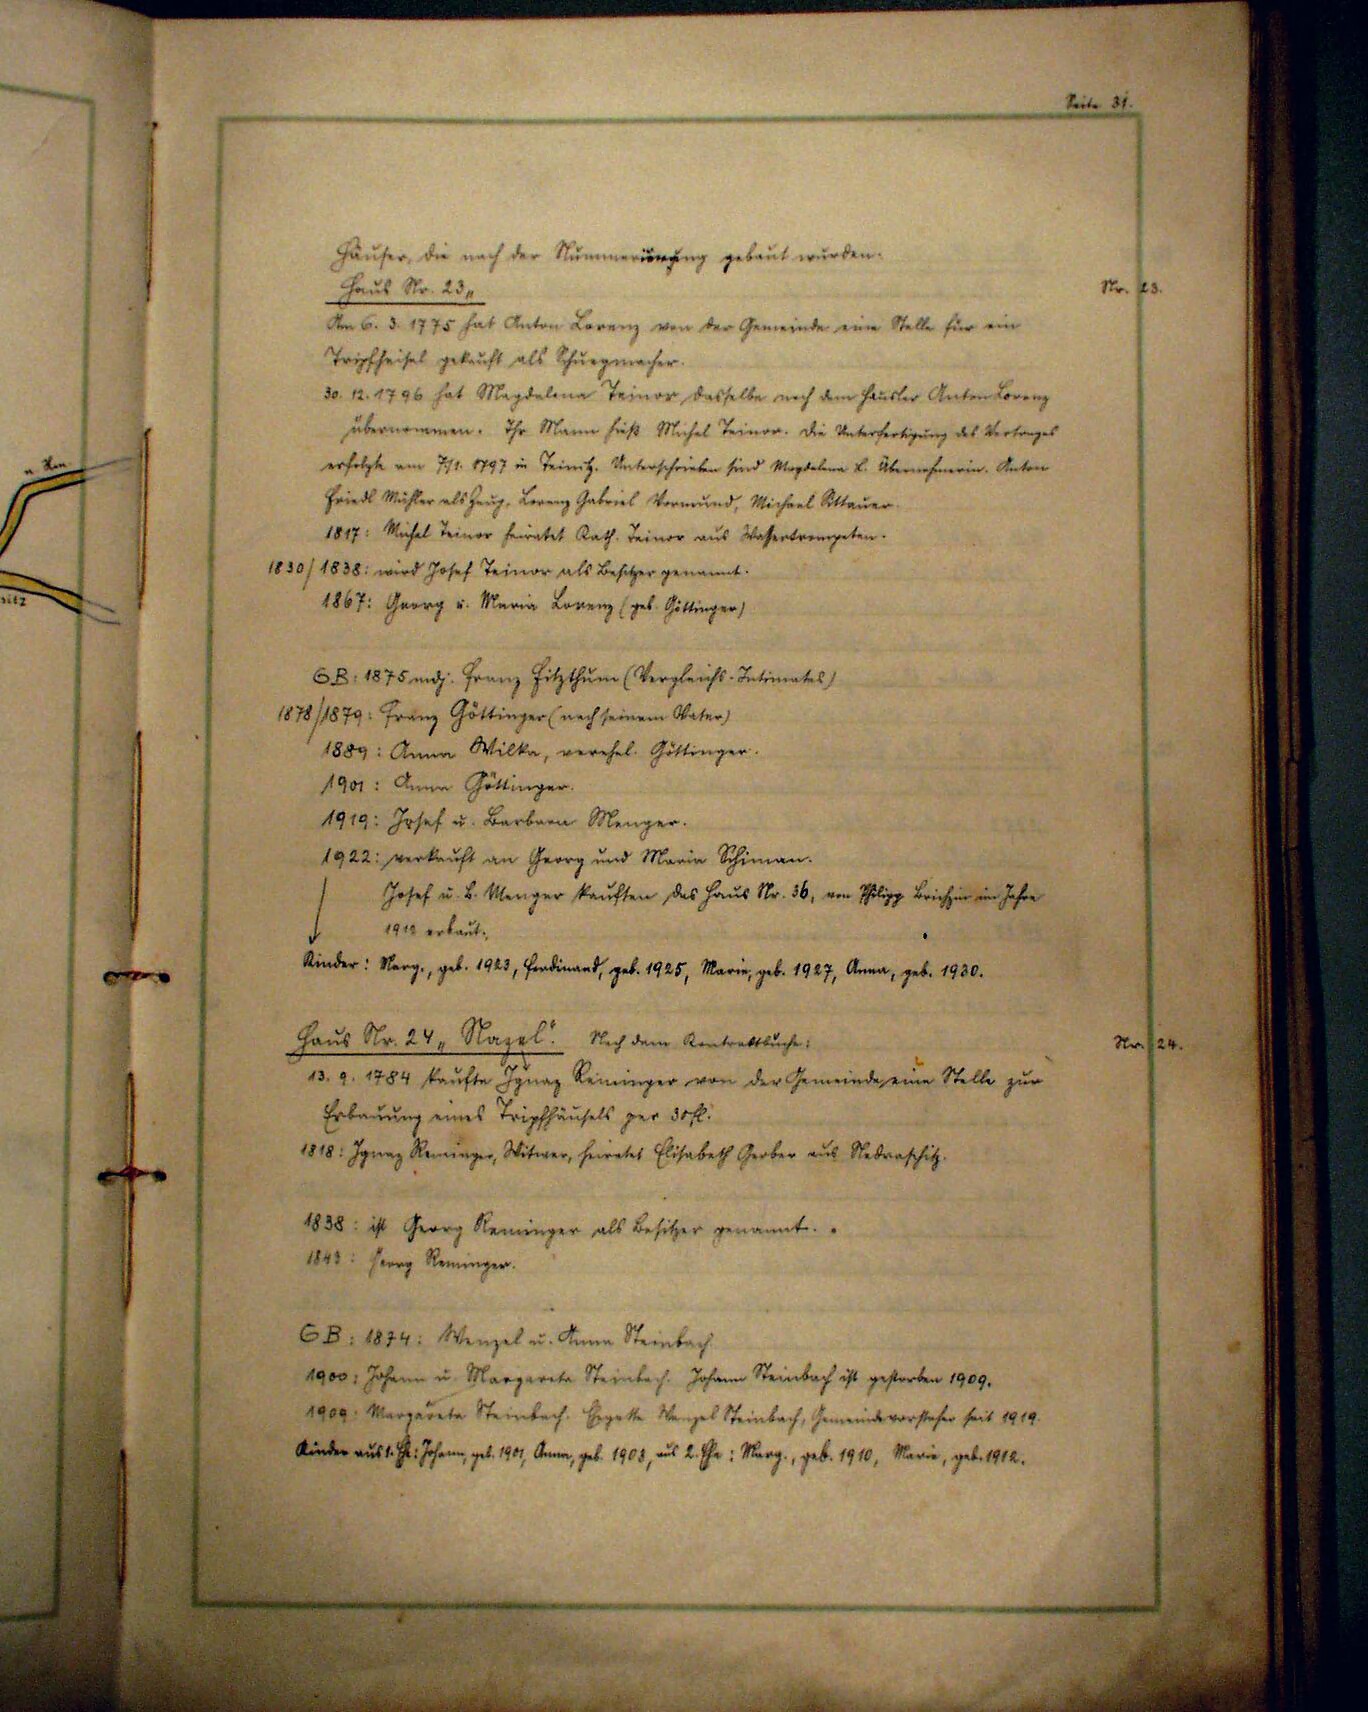 Seite 31.
Häuser, die nach der Nummerierung gebaut wurden.
Haus Nr. 23 „
Nr. 23.
Am 6. 3. 1775 hat Anton Lorenz von der Gemeinde eine Stelle für ein
Tripfheisel gekauft als Schuegmacher.
30. 12. 1796 hat Magdalena Teinor dasselbe nach dem Häusler Anton Lorenz
übernommen. Ihr Mann hieß Michel Teinor. Die Unterfertigung des Vertrages
erfolgte am 7/1. 1797 in Teinitz. Unterschrieben sind Magdalena L. Übernehmerin. Anton
Friedl Mühler als Zeug, Lorenz Gabriel Vormund, Michael
1817: Michel Teinor heiratet Kath. Teinor aus Wassertrompeten.
1830/1838: wird Josef Teinor als Besitzer genannt.
1867: Georg u. Maria Lorenz (geb. Göttinger)
GB: 1875 mdj. Franz Fitzthum (Vergleichs-Intimates)
1878/1879: Franz Göttinger (nach seinem Vater)
1889: Anna Wilka, verehel. Göttinger.
1901: Anna Göttinger.
1919: Josef u. Barbara Menger.
1922: verkauft an Georg und Maria Schiman.
Josef u. B. Menger kauften das Haus Nr. 36, von Philipp im Jahre
1912 erbaut.
Kinder: Marg., geb. 1923, Ferdinand, geb. 1925, Marie, geb. 1927, Anna, geb. 1930.
Haus Nr. 24 „Nazel“. Nach dem Kontraktbuche:
Nr. 24.
13. 9. 1784 kaufte Ignaz Reminger von der Gemeinde eine Stelle zur
Erbauung eines Tripfhäusels per 30 fl.
1818: Ignaz Reminger, Witwer, heiratet Elisabeth Gerber aus Nedraschitz.
1838: ist Georg Reminger als Besitzer genannt.
1843: Georg Reminger.
GB: 1874: Wenzel u. Anna Steinbach.
1900: Johann u. Margareta Steinbach. Johann Steinbach ist gestorben 1909.
1909: Margareta Steinbach. Ehgatte Wenzel Steinbach, Gemeindevorsteher seit 1919.
Kinder aus 1. Ehe: Johann, geb. 1901, Anna, geb. 1903, aus 2. Ehe: Marg., geb. 1910, Marie, geb. 1912.